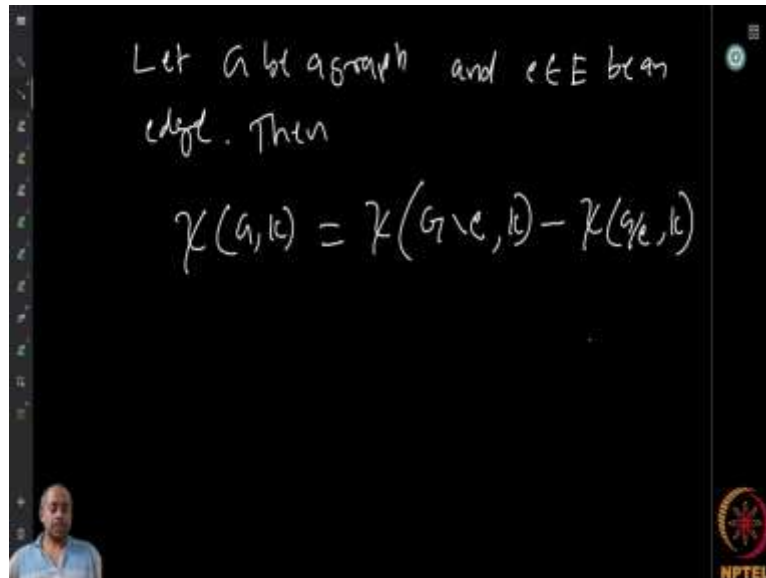 Let G be a graph and e ∈ E be an
edge. Then
χ(G, k) = χ(G \ e, k) − χ(G/e, k)
NPTEL